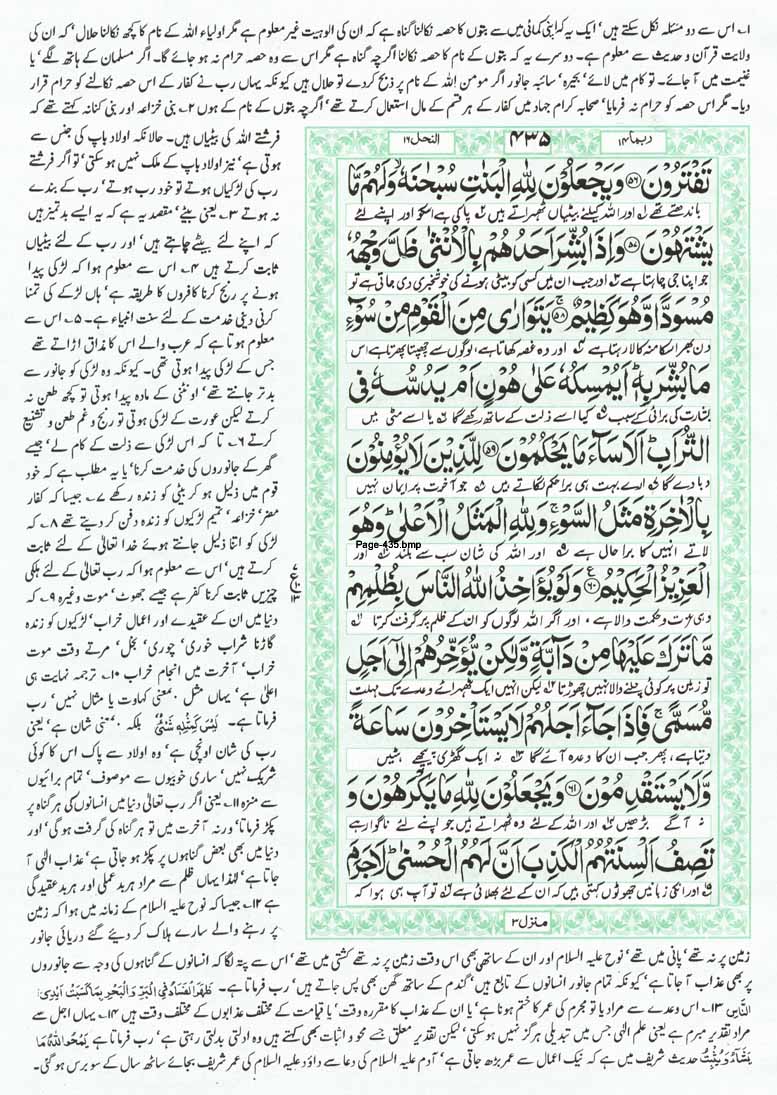 ۱۔ اس سے دو مسئلہ نکل سکتے ہیں' ایک یہ کہ اپنی کمائی میں سے بتوں کا حصہ نکالنا گناہ ہے کہ ان کی الوہیت غیر معلوم ہے مگر اولیاء اللہ کے نام کا کچھ نکالنا حلال' کہ ان کی
ولایت قرآن و حدیث سے معلوم ہے۔ دوسرے یہ کہ بتوں کے نام کا حصہ نکالنا اگرچہ گناہ ہے مگر اس سے وہ حصہ حرام نہ ہو جائے گا۔ اگر مسلمان کے ہاتھ لگے' یا
غنیمت میں آ جائے۔ تو کام میں لائے' بحیرہ' سائبہ جانور اگر مومن اللہ کے نام پر ذبح کر دے تو حلال ہیں کیونکہ یہاں رب نے کفار کے اس حصہ نکالنے کو حرام قرار
دیا۔ مگر اس حصہ کو حرام نہ فرمایا' صحابہ کرام جہاد میں کفار کے ہر قسم کے مال استعمال کرتے تھے' اگرچہ بتوں کے نام کے ہوں ۲۔ بنی خزاعہ اور بنی کنانہ کہتے تھے کہ
ربما ۱۴
۴۳۵
النحل ۱۶
تَفْتَرُوْنَ ﴿۵۶﴾ وَيَجْعَلُوْنَ لِلّٰهِ الْبَنٰتِ سُبْحٰنَهٗ وَلَهُمْ مَّا
باندھتے تھے اور اللہ کیلئے بیٹیاں ٹھہراتے ہیں پاکی ہے اسکو اور اپنے لئے
يَشْتَهُوْنَ ﴿۵۷﴾ وَاِذَا بُشِّرَ اَحَدُهُمْ بِالْاُنْثٰى ظَلَّ وَجْهُهٗ
جو اپنا جی چاہتا ہے اور جب ان میں کسی کو بیٹی ہونے کی خوشخبری دی جاتی ہے تو
مُسْوَدًّا وَّهُوَ كَظِيْمٌ ﴿۵۸﴾ يَتَوَارٰى مِنَ الْقَوْمِ مِنْ سُوْٓءِ
دن بھر اسکا منہ کالا رہتا ہے اور وہ غصہ کھاتا ہے، لوگوں سے چھپتا پھرتا ہے اس
مَا بُشِّرَ بِهٖ اَيُمْسِكُهٗ عَلٰى هُوْنٍ اَمْ يَدُسُّهٗ فِى
بشارت کی برائی کے سبب کیا اسے ذلت کے ساتھ رکھے گا یا اسے مٹی میں
التُّرَابِ اَلَا سَآءَ مَا يَحْكُمُوْنَ ﴿۵۹﴾ لِلَّذِيْنَ لَا يُؤْمِنُوْنَ
دبا دے گا ارے بہت ہی برا حکم لگاتے ہیں جو آخرت پر ایمان نہیں
بِالْاٰخِرَةِ مَثَلُ السَّوْءِ وَلِلّٰهِ الْمَثَلُ الْاَعْلٰى وَهُوَ
Page-435.bmp
لاتے انہیں کا برا حال ہے اور اللہ کی شان سب سے بلند اور
الْعَزِيْزُ الْحَكِيْمُ ﴿۶۰﴾ وَلَوْ يُؤَاخِذُ اللّٰهُ النَّاسَ بِظُلْمِهِمْ
وہی عزت و حکمت والا ہے، اور اگر اللہ لوگوں کو ان کے ظلم پر گرفت کرتا
مَّا تَرَكَ عَلَيْهَا مِنْ دَآبَّةٍ وَّلٰكِنْ يُّؤَخِّرُهُمْ اِلٰٓى اَجَلٍ
تو زمین پر کوئی چلنے والا نہیں چھوڑتا لیکن انہیں ایک ٹھہرائے وعدے تک مہلت
مُّسَمًّى فَاِذَا جَآءَ اَجَلُهُمْ لَا يَسْتَاْخِرُوْنَ سَاعَةً
دیتا ہے، پھر جب ان کا وعدہ آئے گا نہ ایک گھڑی پیچھے ہٹیں
وَّلَا يَسْتَقْدِمُوْنَ ﴿۶۱﴾ وَيَجْعَلُوْنَ لِلّٰهِ مَا يَكْرَهُوْنَ وَ
نہ آگے بڑھیں اور اللہ کے لئے وہ ٹھہراتے ہیں جو اپنے لئے ناگوار ہے
تَصِفُ اَلْسِنَتُهُمُ الْكَذِبَ اَنَّ لَهُمُ الْحُسْنٰى لَا جَرَمَ
اور انکی زبانیں جھوٹوں کہتی ہیں کہ ان کے لئے بھلائی ہے تو آپ ہی ہوا کہ
منزل ۳
فرشتے اللہ کی بیٹیاں ہیں۔ حالانکہ اولاد باپ کی جنس سے
ہوتی ہے' نیز اولاد باپ کے ملک نہیں ہو سکتی' تو اگر فرشتے
رب کی لڑکیاں ہوتے تو خود رب ہوتے' رب کے بندے
نہ ہوتے ۳۔ یعنی بیٹے' مقصد یہ ہے کہ یہ ایسے بدتمیز ہیں
کہ اپنے لئے بیٹے چاہتے ہیں' اور رب کے لئے بیٹیاں
ثابت کرتے ہیں ۴۔ اس سے معلوم ہوا کہ لڑکی پیدا
ہونے پر رنج کرنا کافروں کا طریقہ ہے' ہاں لڑکے کی تمنا
کرنی دینی خدمت کے لئے سنت انبیاء ہے۔ ۵۔ اس سے
معلوم ہوتا ہے کہ عرب والے اس کا مذاق اڑاتے تھے
جس کے لڑکی پیدا ہوتی تھی۔ کیونکہ وہ لڑکی کو جانور سے
بدتر جانتے تھے' اونٹنی کے مادہ پیدا ہوتی تو کچھ طعن نہ
کرتے لیکن عورت کے لڑکی ہوتی تو رنج و غم طعن و تشنیع
کرتے ۶۔ تا کہ اس لڑکی سے ذلت کے کام لے' جیسے
گھر کے جانوروں کی خدمت کرنا' یا یہ مطلب ہے کہ خود
قوم میں ذلیل ہو کر بیٹی کو زندہ رکھے ۷۔ جیسا کہ کفار
مضر' خزاعہ' تمیم لڑکیوں کو زندہ دفن کر دیتے تھے ۸۔ کہ
لڑکی کو اتنا ذلیل جانتے ہوئے خدا تعالیٰ کے لئے ثابت
کرتے ہیں' اس سے معلوم ہوا کہ رب تعالیٰ کے لئے ہلکی
چیزیں ثابت کرنا کفر ہے جیسے جھوٹ' موت وغیرہ ۹۔ کہ
دنیا میں ان کے عقیدے اور اعمال خراب' لڑکیوں کو زندہ
گاڑنا شراب خوری' چوری' بخل' مرتے وقت موت
خراب' آخرت میں انجام خراب ۱۰۔ ترجمہ نہایت ہی
اعلیٰ ہے' یہاں مثل' بمعنی کہاوت یا مثال نہیں' رب
فرماتا ہے۔ لَيْسَ كَمِثْلِهٖ شَيْءٌ بلکہ بمعنی شان ہے' یعنی
رب کی شان اونچی ہے' وہ اولاد سے پاک اس کا کوئی
شریک نہیں' ساری خوبیوں سے موصوف' تمام برائیوں
سے منزہ ۱۱۔ یعنی اگر رب تعالیٰ دنیا میں انسانوں کی ہر گناہ پر
پکڑ فرماتا' ورنہ آخرت میں تو ہر گناہ کی گرفت ہو گی' اور
دنیا میں بھی بعض گناہوں پر پکڑ ہو جاتی ہے' عذاب الٰہی آ
جاتا ہے' لہٰذا یہاں ظلم سے مراد ہر بدعملی اور ہر بدعقیدگی
ہے ۱۲۔ جیسا کہ نوح علیہ السلام کے زمانہ میں ہوا کہ زمین
پر رہنے والے سارے ہلاک کر دیئے گئے دریائی جانور
ع
۱۰
۱۳
زمین پر نہ تھے' پانی میں تھے' نوح علیہ السلام اور ان کے ساتھی بھی اس وقت زمین پر نہ تھے کشتی میں تھے' اس سے پتہ لگا کہ انسانوں کے گناہوں کی وجہ سے جانوروں
پر بھی عذاب آ جاتا ہے' کیونکہ تمام جانور انسانوں کے تابع ہیں' گندم کے ساتھ گھن بھی پس جاتے ہیں' رب فرماتا ہے۔ ظَهَرَ الْفَسَادُ فِى الْبَرِّ وَالْبَحْرِ بِمَا كَسَبَتْ اَيْدِى
النَّاسِ ۱۳۔ اس وعدے سے مراد یا تو مجرم کی عمر کا ختم ہونا ہے' یا ان کے عذاب کا مقررہ وقت' یا قیامت کے مختلف عذابوں کے مختلف وقت ہیں ۱۴۔ یہاں اجل سے
مراد تقدیر مبرم ہے یعنی علم الٰہی جس میں تبدیلی ہرگز نہیں ہو سکتی' لیکن تقدیر معلق جسے محو و اثبات بھی کہتے ہیں وہ ادلتی بدلتی رہتی ہے' رب فرماتا ہے يَمْحُوا اللّٰهُ مَا
يَشَآءُ وَيُثْبِتُ حدیث شریف میں ہے کہ نیک اعمال سے عمر بڑھ جاتی ہے' آدم علیہ السلام کی دعا سے داؤد علیہ السلام کی عمر شریف بجائے ساٹھ سال کے سو برس ہو گئی۔